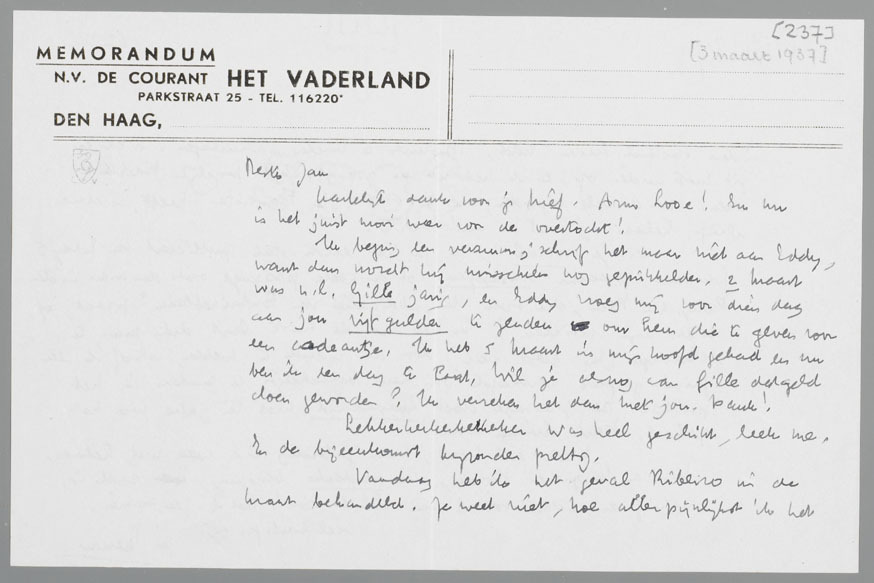 [237]
[3 maart 1937]
MEMORANDUM
N.V. DE COURANT HET VADERLAND
PARKSTRAAT 25 - TEL. 116220*
DEN HAAG,
Beste Jan
hartelijk dank voor je brief. Arme Looe! En nu
is het juist mooi weer voor de overtocht!
Ik begin een schrijf het maar niet aan Eddy,
want dan wordt hij misschien nog geprikkelder. 2 maart
was n.l. Gille jarig, en Eddy vroeg mij voor dien dag
aan jou vijf gulden te zenden om hem die te geven voor
een cadeautje. Ik heb 5 maart in mijn hoofd gehad en nu
ben ik een dag te laat. Wil je alsnog aan Gille dat geld
doen geworden? Ik verreken het dan met jou. Dank!
was heel geschikt, leek me.
En de bijeenkomst bijzonder prettig.
Vandaag heb ik het geval Ribeiro in de
krant behandeld. Je weet niet, hoe allerpijnlijkst ik het